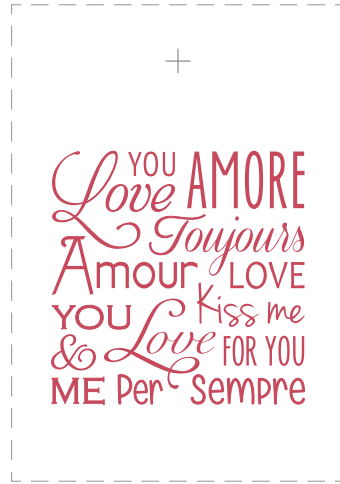 Love YOU AMORE
Toujours
Amour LOVE
YOU Love Kiss me
& FOR YOU
ME Per Sempre